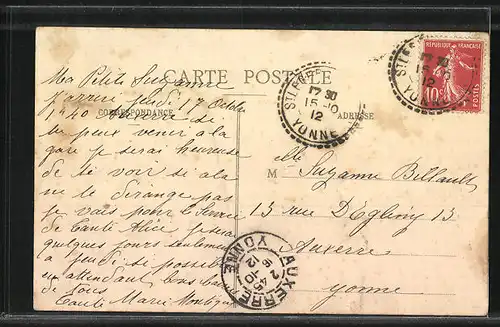 CARTE POSTALE
CORRESPONDANCE
ADRESSE
Ma Petite Suzanne
j'arrive jeudi 17 Octobre
1h40 si
tu peux venir a la
gare je serai heureuse
de te voir si cela
ne te dérange pas
je vais pour le service
de tante Alice je serai
quelques jours seulement
a jeudi si possible
en attendant bons baisers
de tous
Tante Marie
M lle Suzanne Billault
13 rue D'Egleny 13
Auxerre
Yonne
17 30
15-10
12
YONNE
17 30
15-10
12
YONNE
RÉPUBLIQUE FRANÇAISE
10c
POSTES
AUXERRE
16-10
12
YONNE